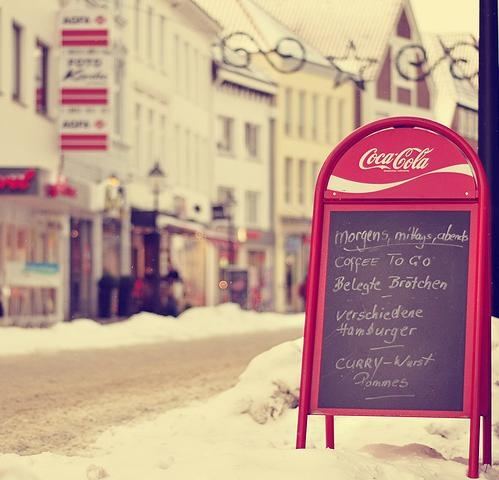 AGFA
FOTO
AGFA
Coca-Cola
morgens, mittags, abends
COFFEE TO GO
Belegte Brötchen
verschiedene
Hamburger
CURRY-Wurst
Pommes